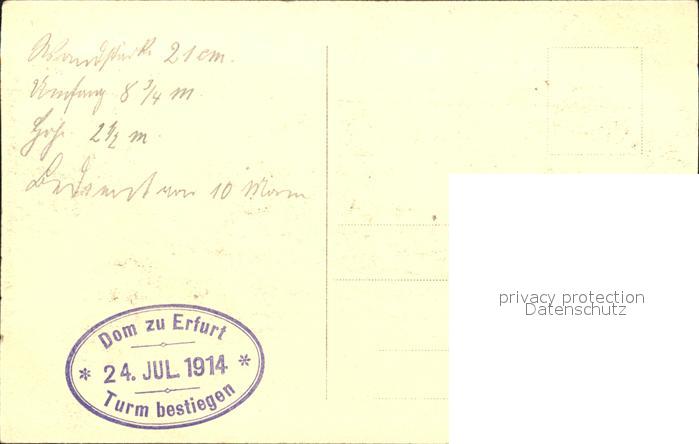 Wandstärke 21 cm.
Umfang 8 3/4 m
Höhe 2 1/2 m
Bedient von 10 Mann
Dom zu Erfurt
* 24. JUL. 1914 *
Turm bestiegen
privacy protection
Datenschutz